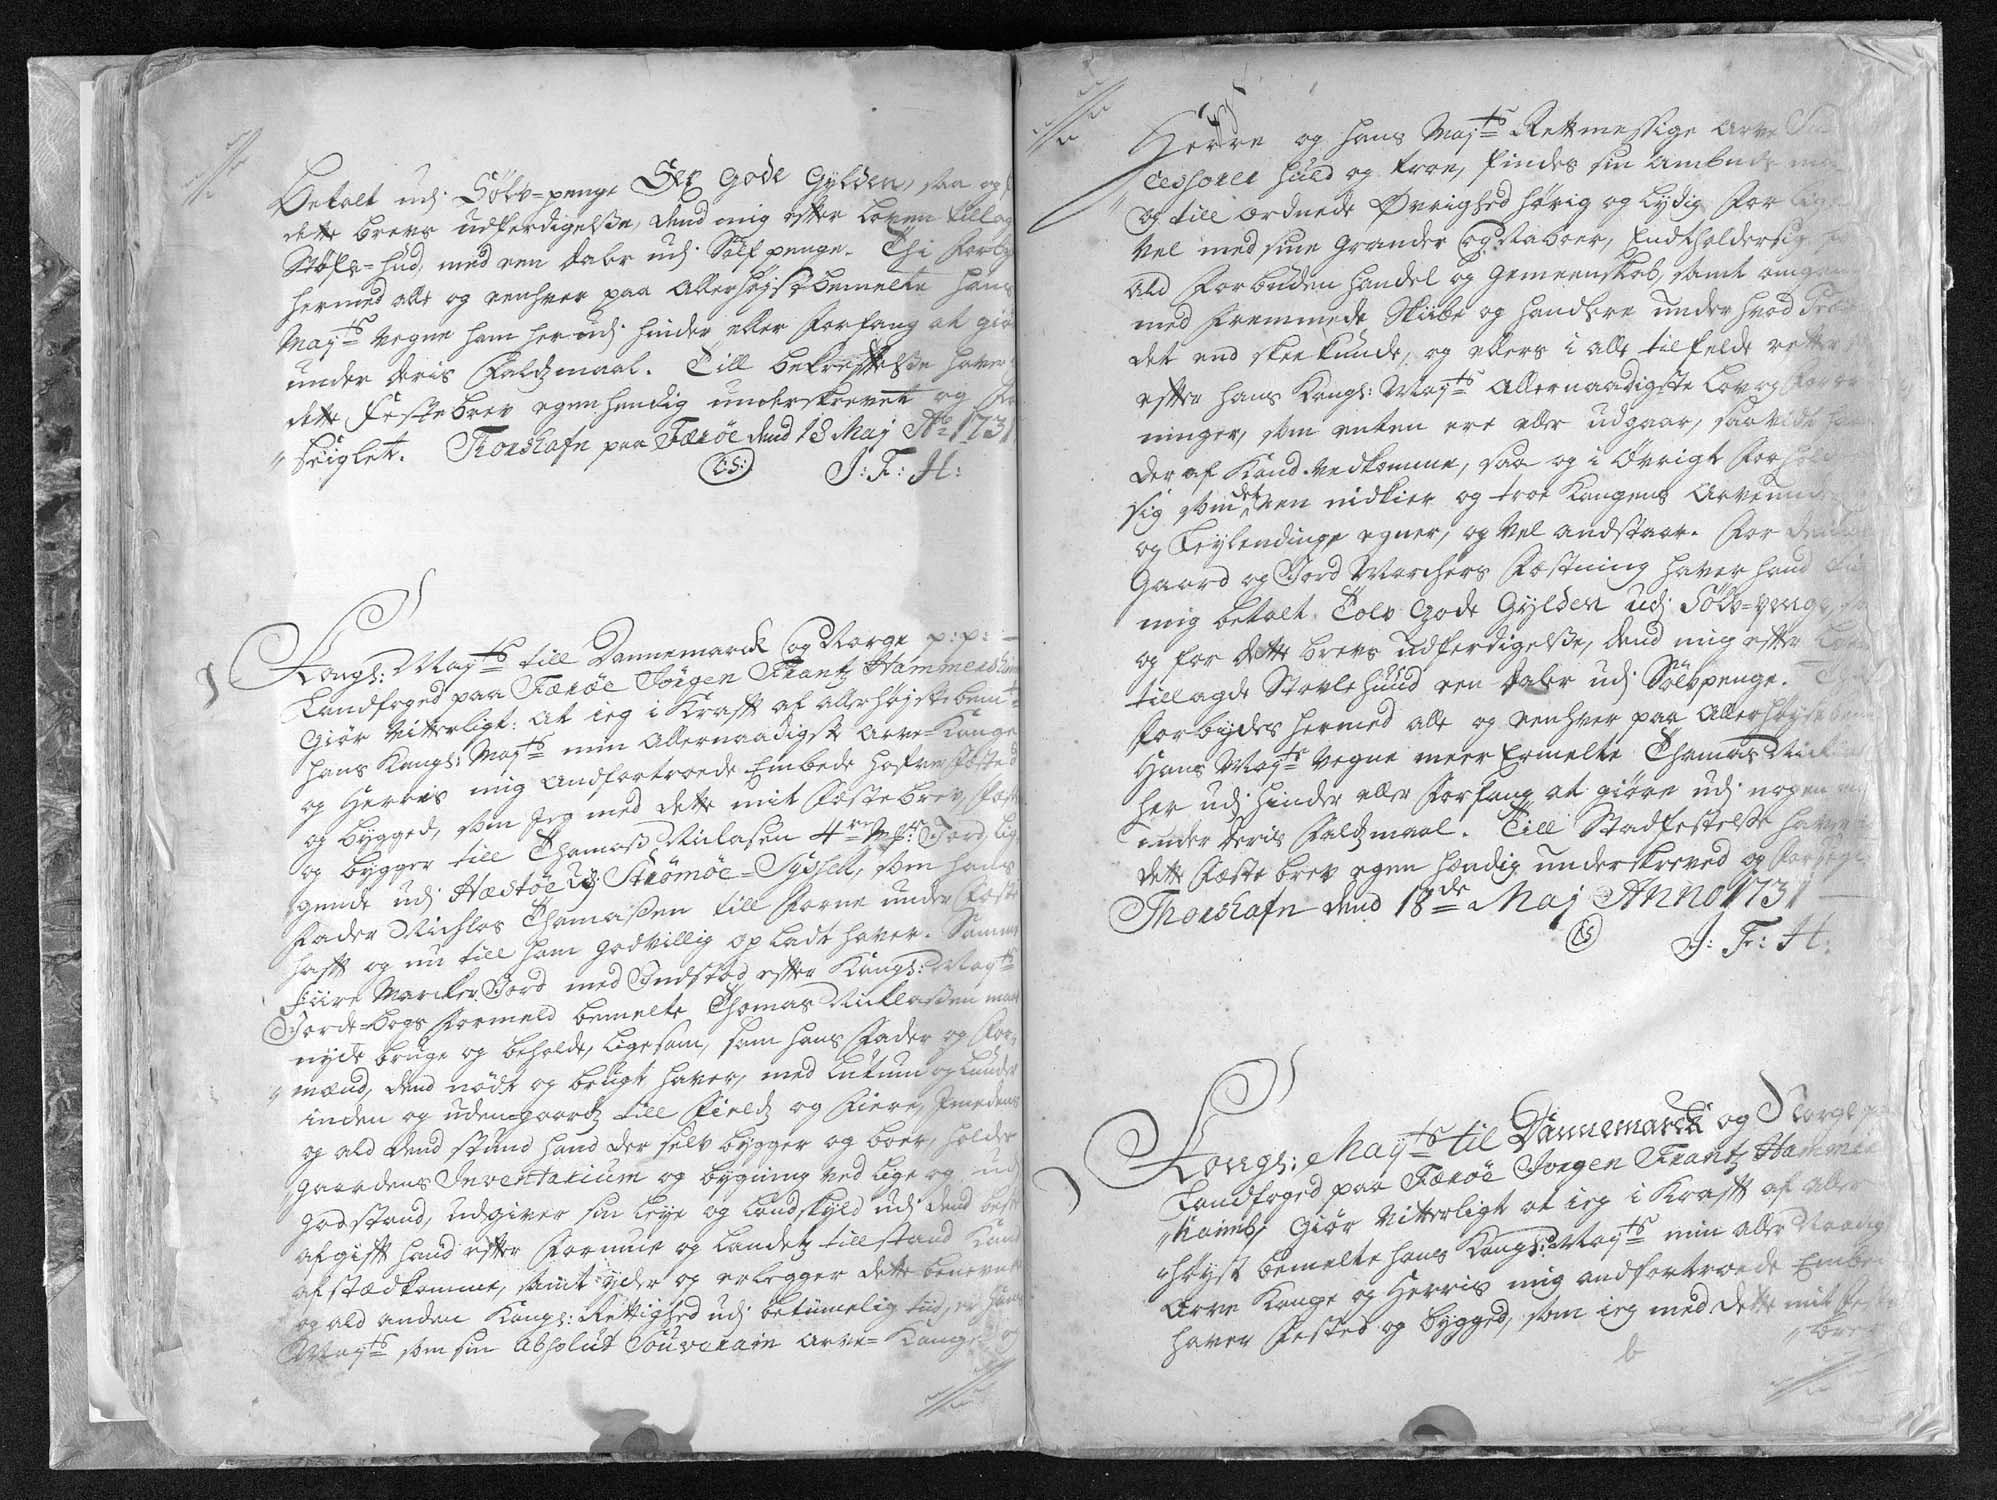 Betalt udj Sölv=penge Sex gode Gylden, saa og
dette brevs udferdigelsße, dend mig efter loven tillag
Støfle=hud, med een daler udj Sölf penge. Thi forby
hermed alle og eenhver paa Allerhøjstbemelte Hans
Mayts vegne ham herudj hinder eller forfang at giø
under deris Faldzmaal. Till bekreftelsße haver
dette Festebrev egenhendig underskrevet og
seiglet. Thorshafn paa Færöe dend 18 Maj Ao 1731
L:S: J: F: H:
Kongl: Mayts till Dannemarck og Norge p:p:
Landfoged paa Færöe Jörgen Frantz Hammershaim
Giør Vitterligt: At ieg i Krafft af allerhøjstebemte
Hans Kongl: Mayts min Allernaadigste Arve=Konge
og Herres mig Andfortroede Embede hafver Fested
og bygged, som Jeg med dette mit Festebrev, Fæste
og bygger till Thomas Niclasen 4re Mrk: Jord, lig
gende udj Hæstöe udj Strömöe=Syssel, som hans
Fader Nichlos Thomaßen till forne under Fæste
hafft og nu till ham godvillig op ladt haver. Samme
Fiire Marcker Jord med Indstød efter Kongl: Mayts
Jorde=bogs Formeld bemelte Thomas Niclaßen maa
nyde bruge og beholde, ligesom, som hans Fader og For,,
,,mænd, dend nødt og brugt haver, med lutum og lunder
inden og uden=gaardz till Fieldz og Fiere, Imedens
og ald dend stund hand der selv bygger og boer, holder
Gaardens Inventarium og bygning ved lige og
god stand, udgiver sin leye og Landskyld udj dend beste
afgifft hand efter Formue og Landetz tillstand Kand
afstædkomme, samt yder og erlegger dette benevnte
og ald anden Kongl: Rettighed udj betimelig tiid, er Hans
Mayts som sin Absolut Souverain Arve=Konge og
Herre og Hans Mayts Rettmessige Arve Suc
cessorer huld og troe, findes sin Ambuds
og till ordnede Øvrighed hørig og lydig. For liges
vel med sine Grander og Naboer, Endtholder sig fra
ald Forbuden handel og gemeenskab, samt omgang
med Fremmede Skibe og handlere under hvad
det end skee kunde, og ellers i alle tilfelde retter
efter Hans Kongl: Mayts Allernaadigste lov og Foror
ninger, som enten ere eller udgaar, saavidt ham
der af Kand vedkomme, saa og i Øvrigt forholder
sig som det een nidkier og troe Kongens Arveunder
og Leylendinge egner, og vel anstaar. For denne
Gaard og Jord Marchers Fæstning haver hand til
mig betalt Tolv Gode Gylden udj Sölv=penge,
og for dette brevs udferdigelsße, dend mig efter loven
tillagde Støvle huud een daler udj Sölvpenge. Thi
forbydes hermed alle og eenhver paa Allerhøystbem
Hans Mayts vegne meer Ermelte Thomas Nicla
her udj hinder eller forfang at giøre udj nogen
under deris Faldzmaal. Till Stadfestelsße haver
dette Fæste brev egen hændig underskreved og Forsegl
Thorshafn dend 18de Maj Anno 1731
LS J: F: H:
Kongl: Mayts til Dannemarck og Norge p
Landfoged paa Færöe Jorgen Frantz Hammer
,,haimb, Giør Vitterligt at ieg i Krafft af Aller
,,høyst bemelte Hans Kongl: Mayts min aller Naadig
Arve Konge og Herris mig andfortroede Embe
haver Fested og bygged, som ieg med dette mit Feste
,,brev
b